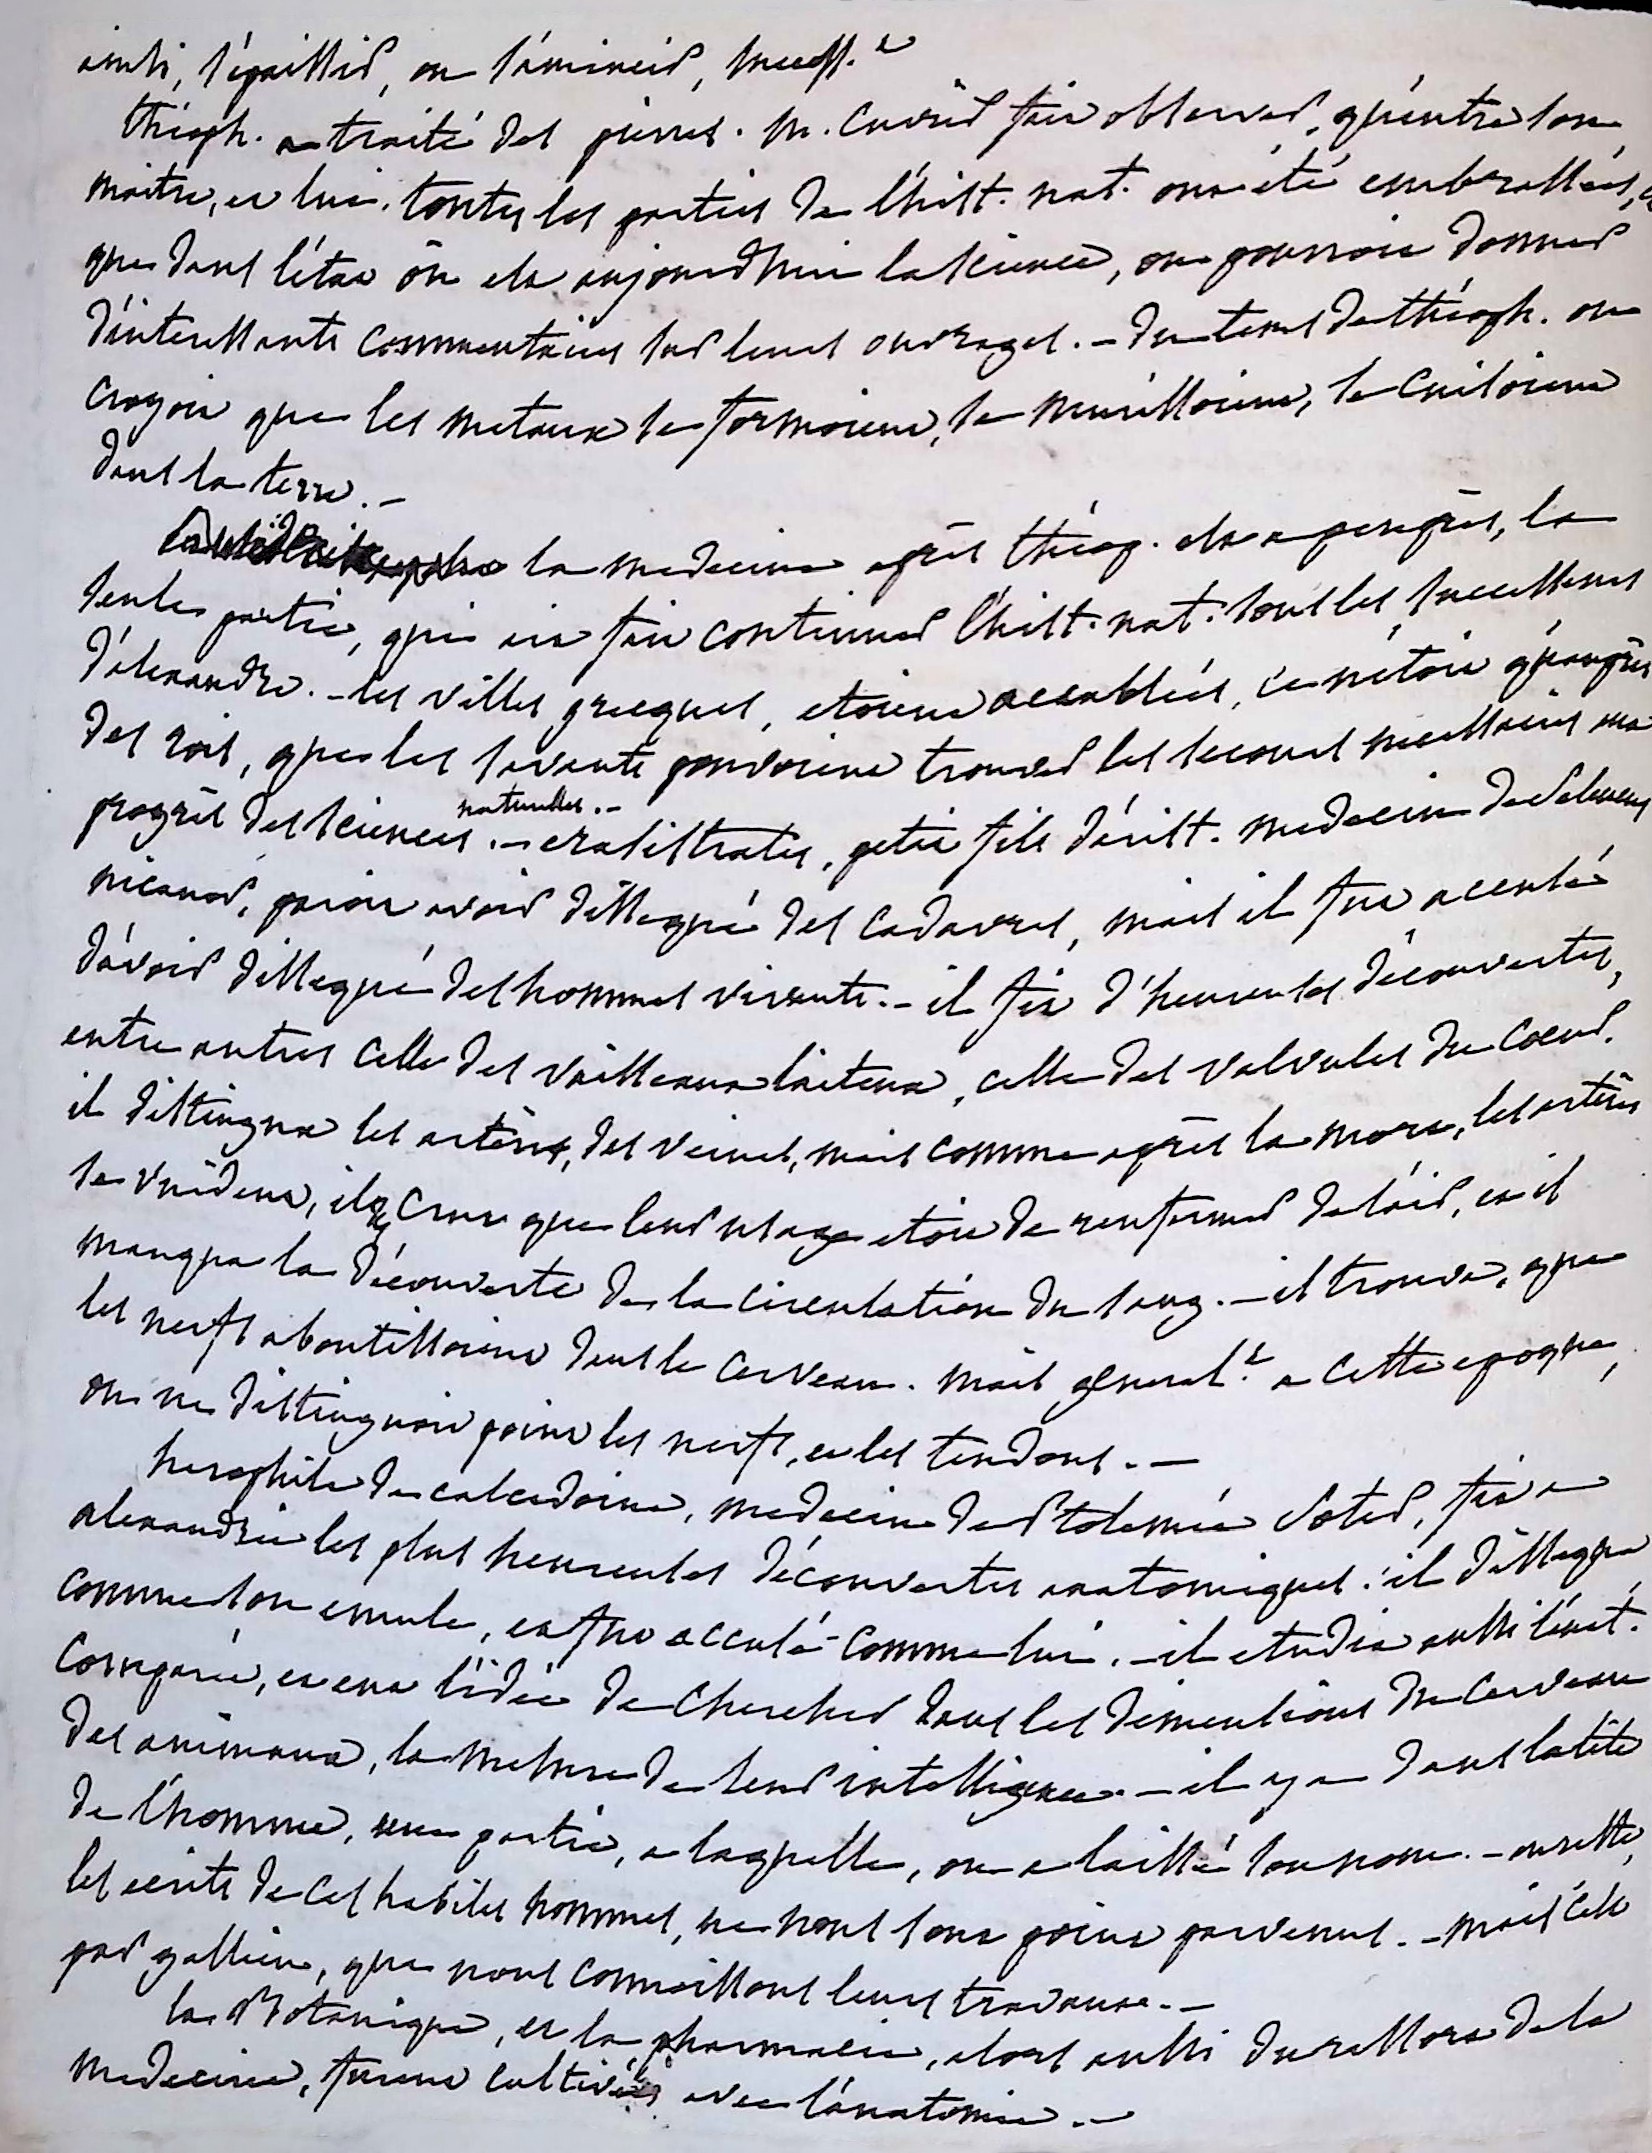 ainsi, s'épaissir, ou s'amincir, success.t
théoph. a traité des pierres. M. Cuvier fait observer, qu'entre son
maitre, et lui, toutes les parties de l'hist. nat. ont été embrassées, et
que dans l'état où est aujourdhui la science, on pourroit donner
d'interessants commentaires sur leurs ouvrages. – du tems de théoph. on
croyoit que les metaux se formoient, se murissoient, se cuisoient
dans la terre. –
la medecine après théop. est a peu près, la
seule partie, qui ait fait continuer l'hist. nat. sous les successeurs
d'alexandre. – les villes grecques, etoient accablées, ce n'étoit qu'auprès
des rois, que les savants pouvoient trouver les secours necessaires au
progrès des sciences naturelles. – erasistrates, petit fils d'arist. medecin de Seleucus
nicanor, paroit avoir disséqué des cadavres, mais il fut accusé
d'avoir disséqué des hommes vivants. – il fit d'heureuses découvertes,
entre autres celle des vaisseaux laiteux, celle des valvules du coeur.
il distingua les artères, des veines, mais comme après la mort, les artères
se vuident, il crut que leur usage etoit de renfermer de l'air, et il
manqua la découverte de la circulation du sang. – il trouva, que
les nerfs aboutissoient dans le cerveau. mais general.t a cette epoque,
on ne distinguoit point les nerfs, et les tendons. –
herophile de calcedoine, medecin de Ptolemée Soter, fit a
alexandrie les plus heureuses découvertes anatomiques. il disséqua
comme son emule, et fut accusé comme lui. – il etudia aussi l'anat.
comparée, et eut l'idée de chercher dans les dimensions du cerveau
des animaux, la mesure de leur intelligence. – il y a dans la tête
de l'homme, une partie, a laquelle, on a laissé son nom. – au reste,
les ecrits de ces habiles hommes, ne nous sont point parvenus. – mais c'est
par gallien, que nous connoissons leurs travaux. –
la Botanique, et la pharmacie, alors aussi du ressort de la
medecine, furent cultivées avec l'anatomie. –